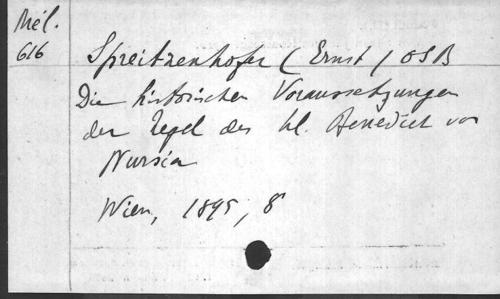 Mél.
616
Spreitzenhofer (Ernst) OSB
Die historischen Voraussetzungen
der Regel des hl. Benedict von
Nursia
Wien, 1895, 8°